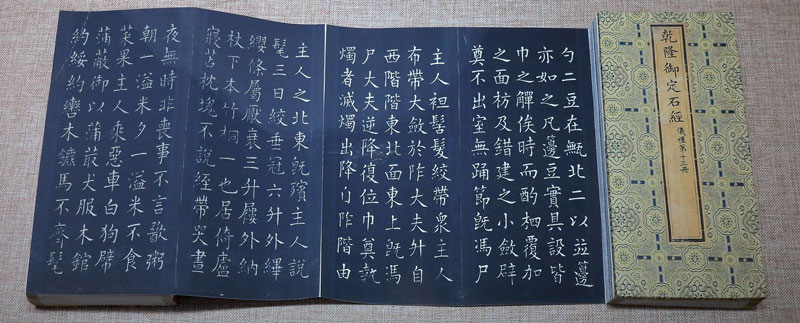 乾隆御定石經
儀禮第十三冊
勺二豆在甒北二以並籩
亦如之凡籩豆實具設皆
巾之觶俟時而酌柶覆加
之面枋及錯建之小斂辟
奠不出室無踊節既馮尸
主人袒髻髮絞帶衆主人
布帶大斂於阼大夫升自
西階階東北面東上既馮
尸大夫逆降復位巾奠執
燭者滅燭出降自阼階由
主人之北東既殯主人說
髦三日絞垂冠六升外縪
纓條屬厭衰三升屨外納
杖下本竹桐一也居倚廬
寢苫枕塊不說絰帶哭晝
夜無時非喪事不言歠粥
朝一溢米夕一溢米不食
菜果主人乘惡車白狗幦
蒲蔽御以蒲菆犬服木錧
約綏約轡木鑣馬不齊髦